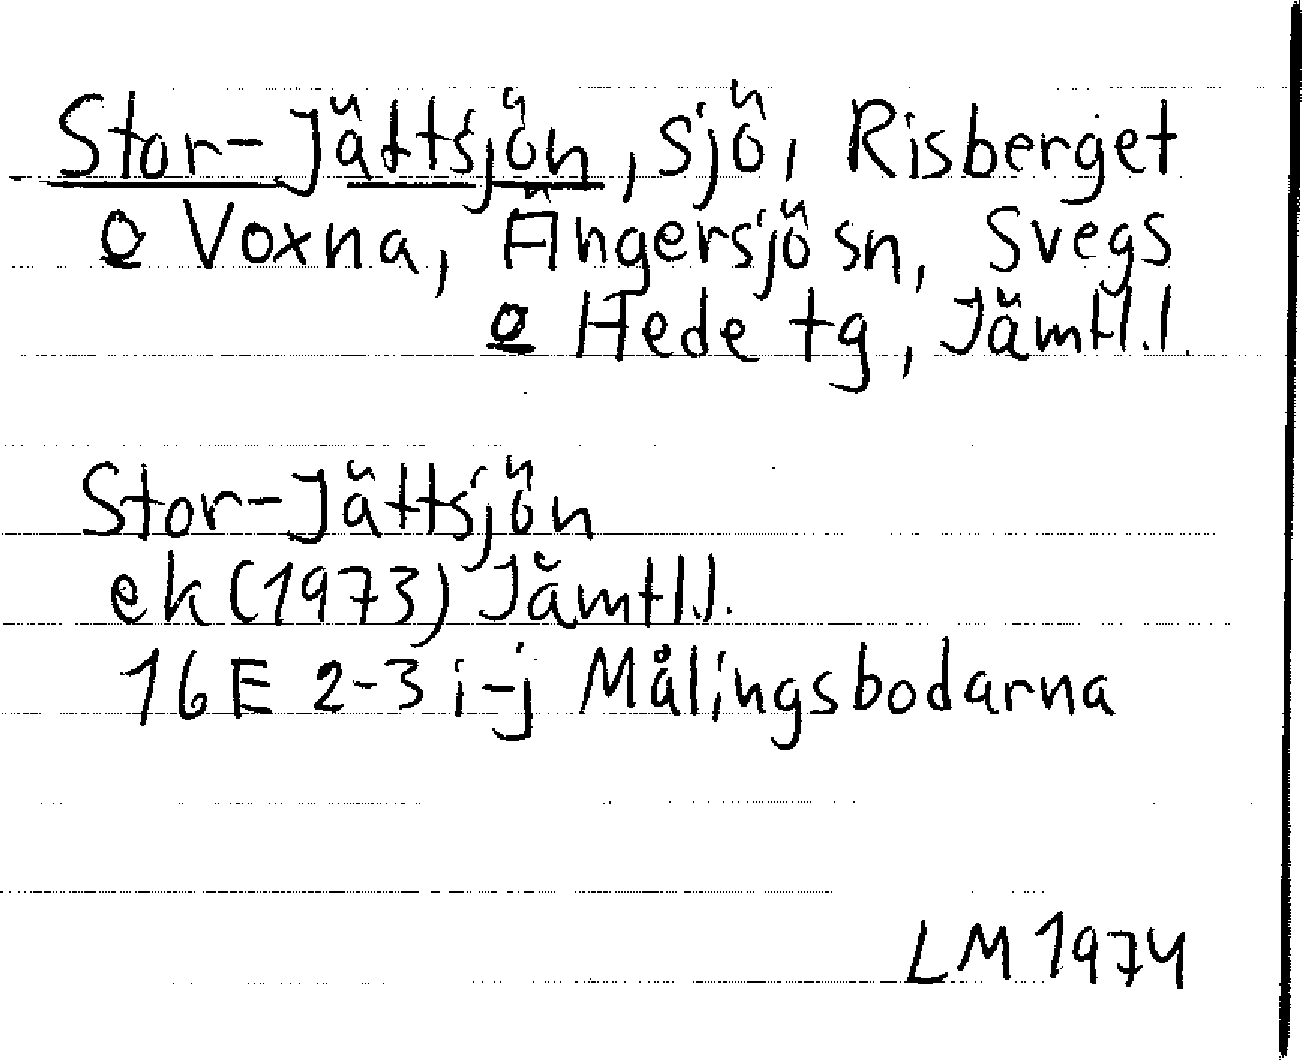 Stor-Jättsjön, sjö, Risberget
o Voxna, Ängersjö sn, Svegs
o Hede tg, Jämtl.l.
Stor-Jättsjön
ek (1973) Jämtl.l.
16 E 2-3 i-j Målingsbodarna
LM 1974